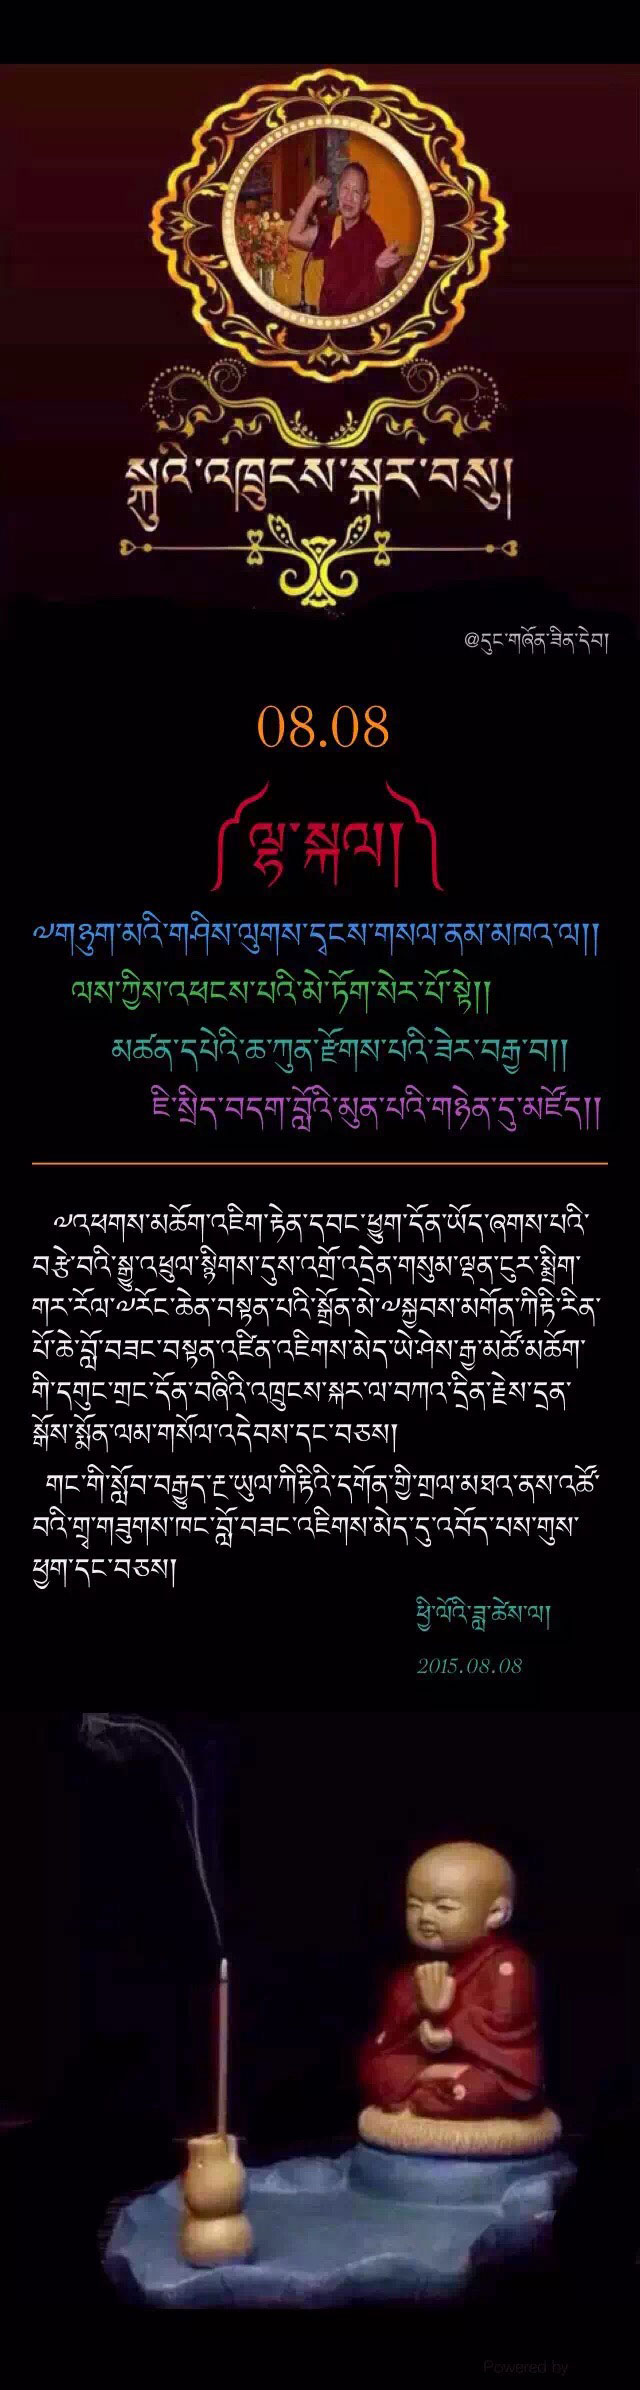 སྐུའི་འཁྲུངས་སྐར་བསུ།
@དུང་གཞོན་ཟིན་དེབ།
08.08
༼ལྷ་སྐལ།༽
༧གཉུག་མའི་གཤིས་ལུགས་དྭངས་གསལ་ནམ་མཁའ་ལ།།
ལས་ཀྱིས་འཕངས་པའི་མེ་ཏོག་སེར་པོ་སྟེ།།
མཚན་དཔེའི་ཆ་ཀུན་རྫོགས་པའི་ཟེར་བརྒྱ་བ།།
ཇི་སྲིད་བདག་བློའི་མུན་པའི་གཉེན་དུ་མཛོད།།
༧འཕགས་མཆོག་འཇིག་རྟེན་དབང་ཕྱུག་དོན་ཡོད་ཞགས་པའི་
བརྩེ་བའི་སྒྱུ་འཕྲུལ་སྙིགས་དུས་འགྲོ་འདྲེན་གསུམ་ལྡན་ངུར་སྨྲིག་
གར་རོལ་༧རོང་ཆེན་བསྟན་པའི་སྒྲོན་མེ་༧སྐྱབས་མགོན་ཀིརྟི་རིན་
པོ་ཆེ་བློ་བཟང་བསྟན་འཛིན་འཇིགས་མེད་ཡེ་ཤེས་རྒྱ་མཚོ་མཆོག་
གི་དགུང་གྲང་དོན་བཞིའི་འཁྲུངས་སྐར་ལ་བཀའ་དྲིན་རྗེས་དྲན་
སྒོས་སྨོན་ལམ་གསོལ་འདེབས་དང་བཅས།
གང་གི་སློབ་བརྒྱུད་རྔ་ཡུལ་ཀིརྟིའི་དགོན་གྱི་གྲལ་མཐའ་ནས་འཚོ་
བའི་གྲྭ་གཟུགས་ཁང་བློ་བཟང་འཇིགས་མེད་དུ་འབོད་པས་གུས་
ཕྱག་དང་བཅས།
ཕྱི་ལོའི་ཟླ་ཚེས་ལ།
2015.08.08
Powered by